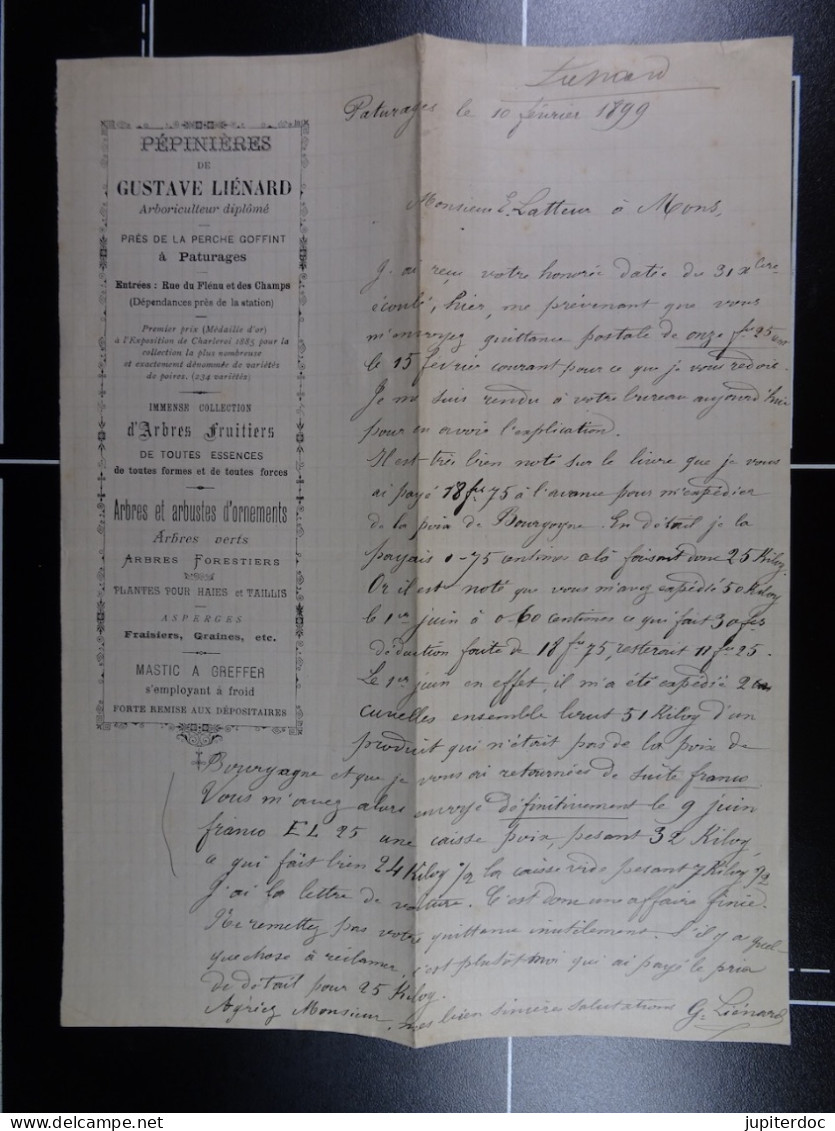 Liénard
Paturages le 10 février 1899
PÉPINIÈRES
DE
GUSTAVE LIÉNARD
Arboriculteur diplômé
PRÉS DE LA PERCHE GOFFINT
à Paturages
Entrées : Rue du Flénu et des Champs
(Dépendances près de la station)
Premier prix (Médaille d'or)
à l'Exposition de Charleroi 1885 pour la
collection la plus nombreuse
et exactement dénommée de variétés
de poires. (234 variétés)
IMMENSE COLLECTION
d'Arbres Fruitiers
DE TOUTES ESSENCES
de toutes formes et de toutes forces
Arbres et arbustes d'ornements
Arbres verts
ARBRES FORESTIERS
PLANTES POUR HAIES et TAILLIS
ASPERGES
Fraisiers, Graines, etc.
MASTIC A GREFFER
s'employant à froid
FORTE REMISE AUX DÉPOSITAIRES
Monsieur E. Latteur à Mons,
J'ai reçu votre honorée datée du 31 Xbre
écoulé, hier, me prévenant que vous
m'envoyez quittance postale de onze frs 25
le 15 fevrie courant pour ce que je vous redois.
Je me suis rendu à votre bureau aujourd'hui
pour en avoir l'explication.
Il est très bien noté sur le livre que je vous
ai payé 18 frs 75 à l'avance pour m'expédier
de la poix de Bourgogne. En détail je la
payais 0-75 centimes faisant donc 25 Kilog.
Or il est noté que vous m'avez expédié 50 Kilog
le 1er juin à 0 60 centimes ce qui fait 30 frs
déduction faite de 18 frs 75, resterait 11 frs 25.
Le 1er juin en effet, il m'a été expédié 2
cuvelles ensemble brut 51 Kilog d'un
produit qui n'était pas de la poix de
Bourgogne et que je vous ai retournées de suite franco
Vous m'avez alors envoyé définitivement le 9 juin
franco EL 25 une caisse poix, pesant 32 Kilog
ce qui fait bien 24 Kilog 1/2 la caisse vide pesant 7 Kilog 1/2
J'ai la lettre de voiture. C'est donc une affaire finie.
Ne remettez pas votre quittance inutilement. S'il y a quel-
que chose à réclamer, c'est plutôt moi qui ai payé le prix
de détail pour 25 Kilog.
Agréez Monsieur, mes bien sincères salutations G. Liénard
jupiterdoc